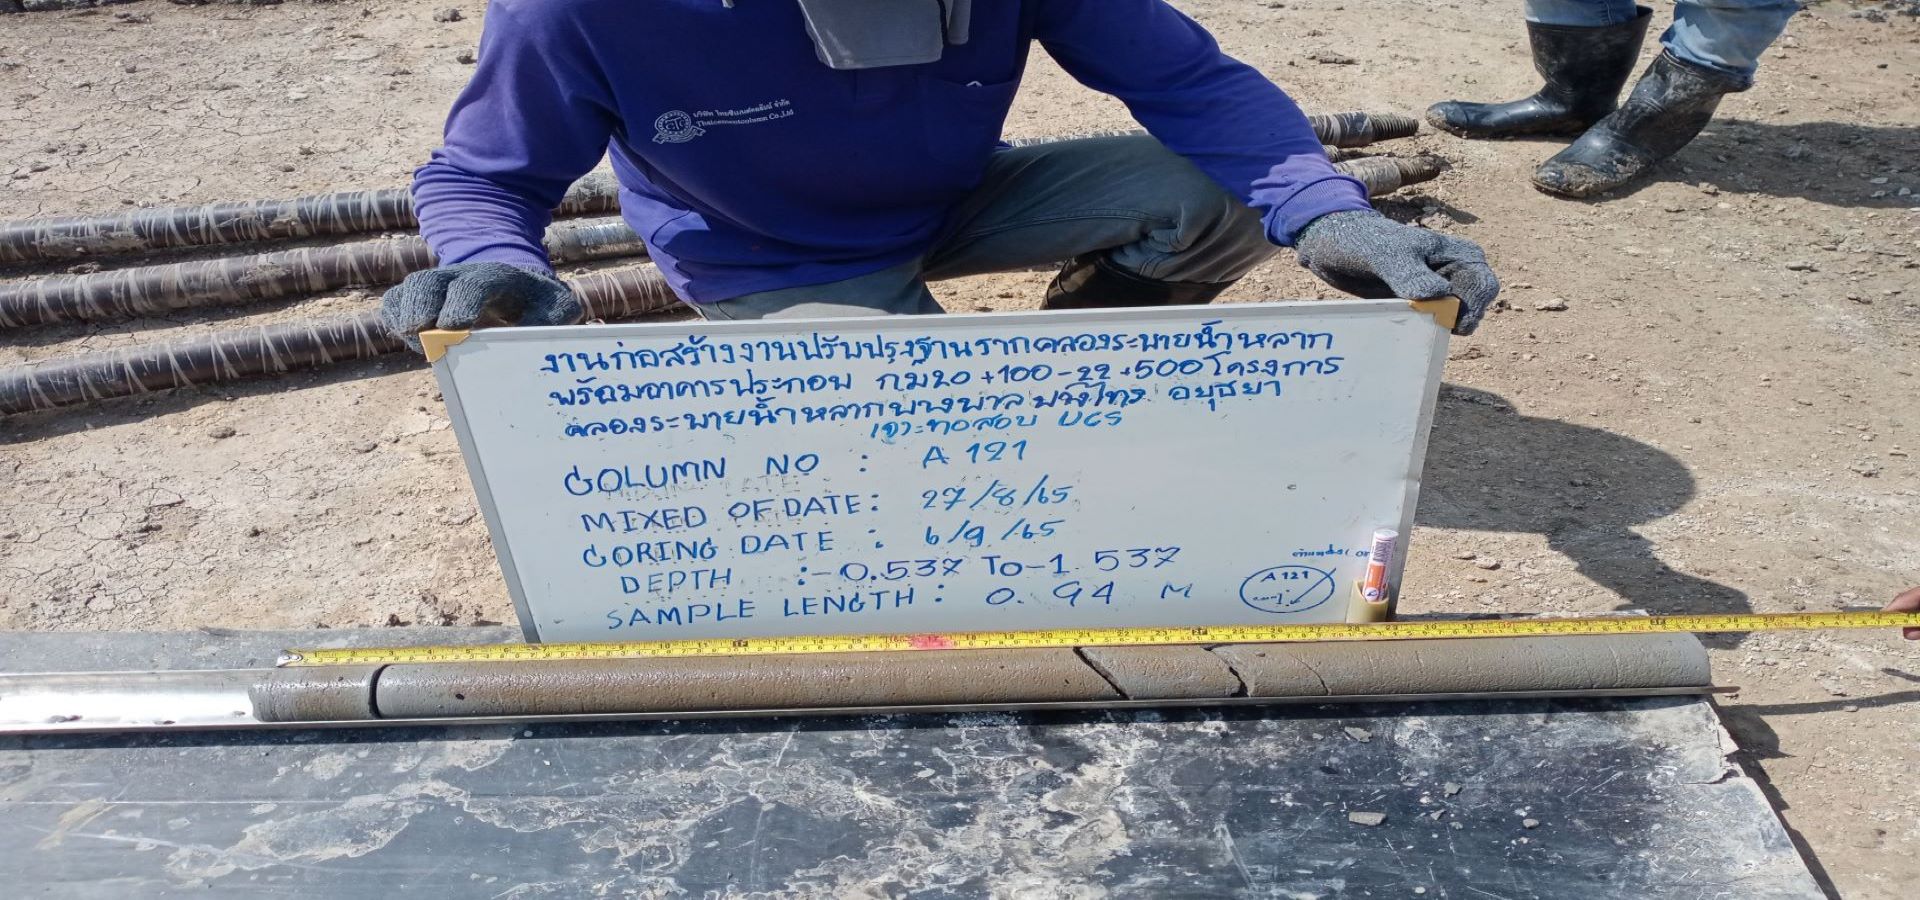 บริษัท ไทยซีเมนต์คอลัมน์ จำกัด
Thaicementcolumn Co.,Ltd
งานก่อสร้างงานปรับปรุงฐานรากคลองระบายน้ำหลาก
พร้อมอาคารประกอบ กม20+100-22+500โครงการ
คลองระบายน้ำหลากบางบาล บางไทร อยุธยา
เจาะทดสอบ UCS
COLUMN NO : A 121
MIXED OF DATE : 27/8/65
CORING DATE : 6/9/65
DEPTH :-0.537 To-1.537
SAMPLE LENGTH : 0.94 M
A 121